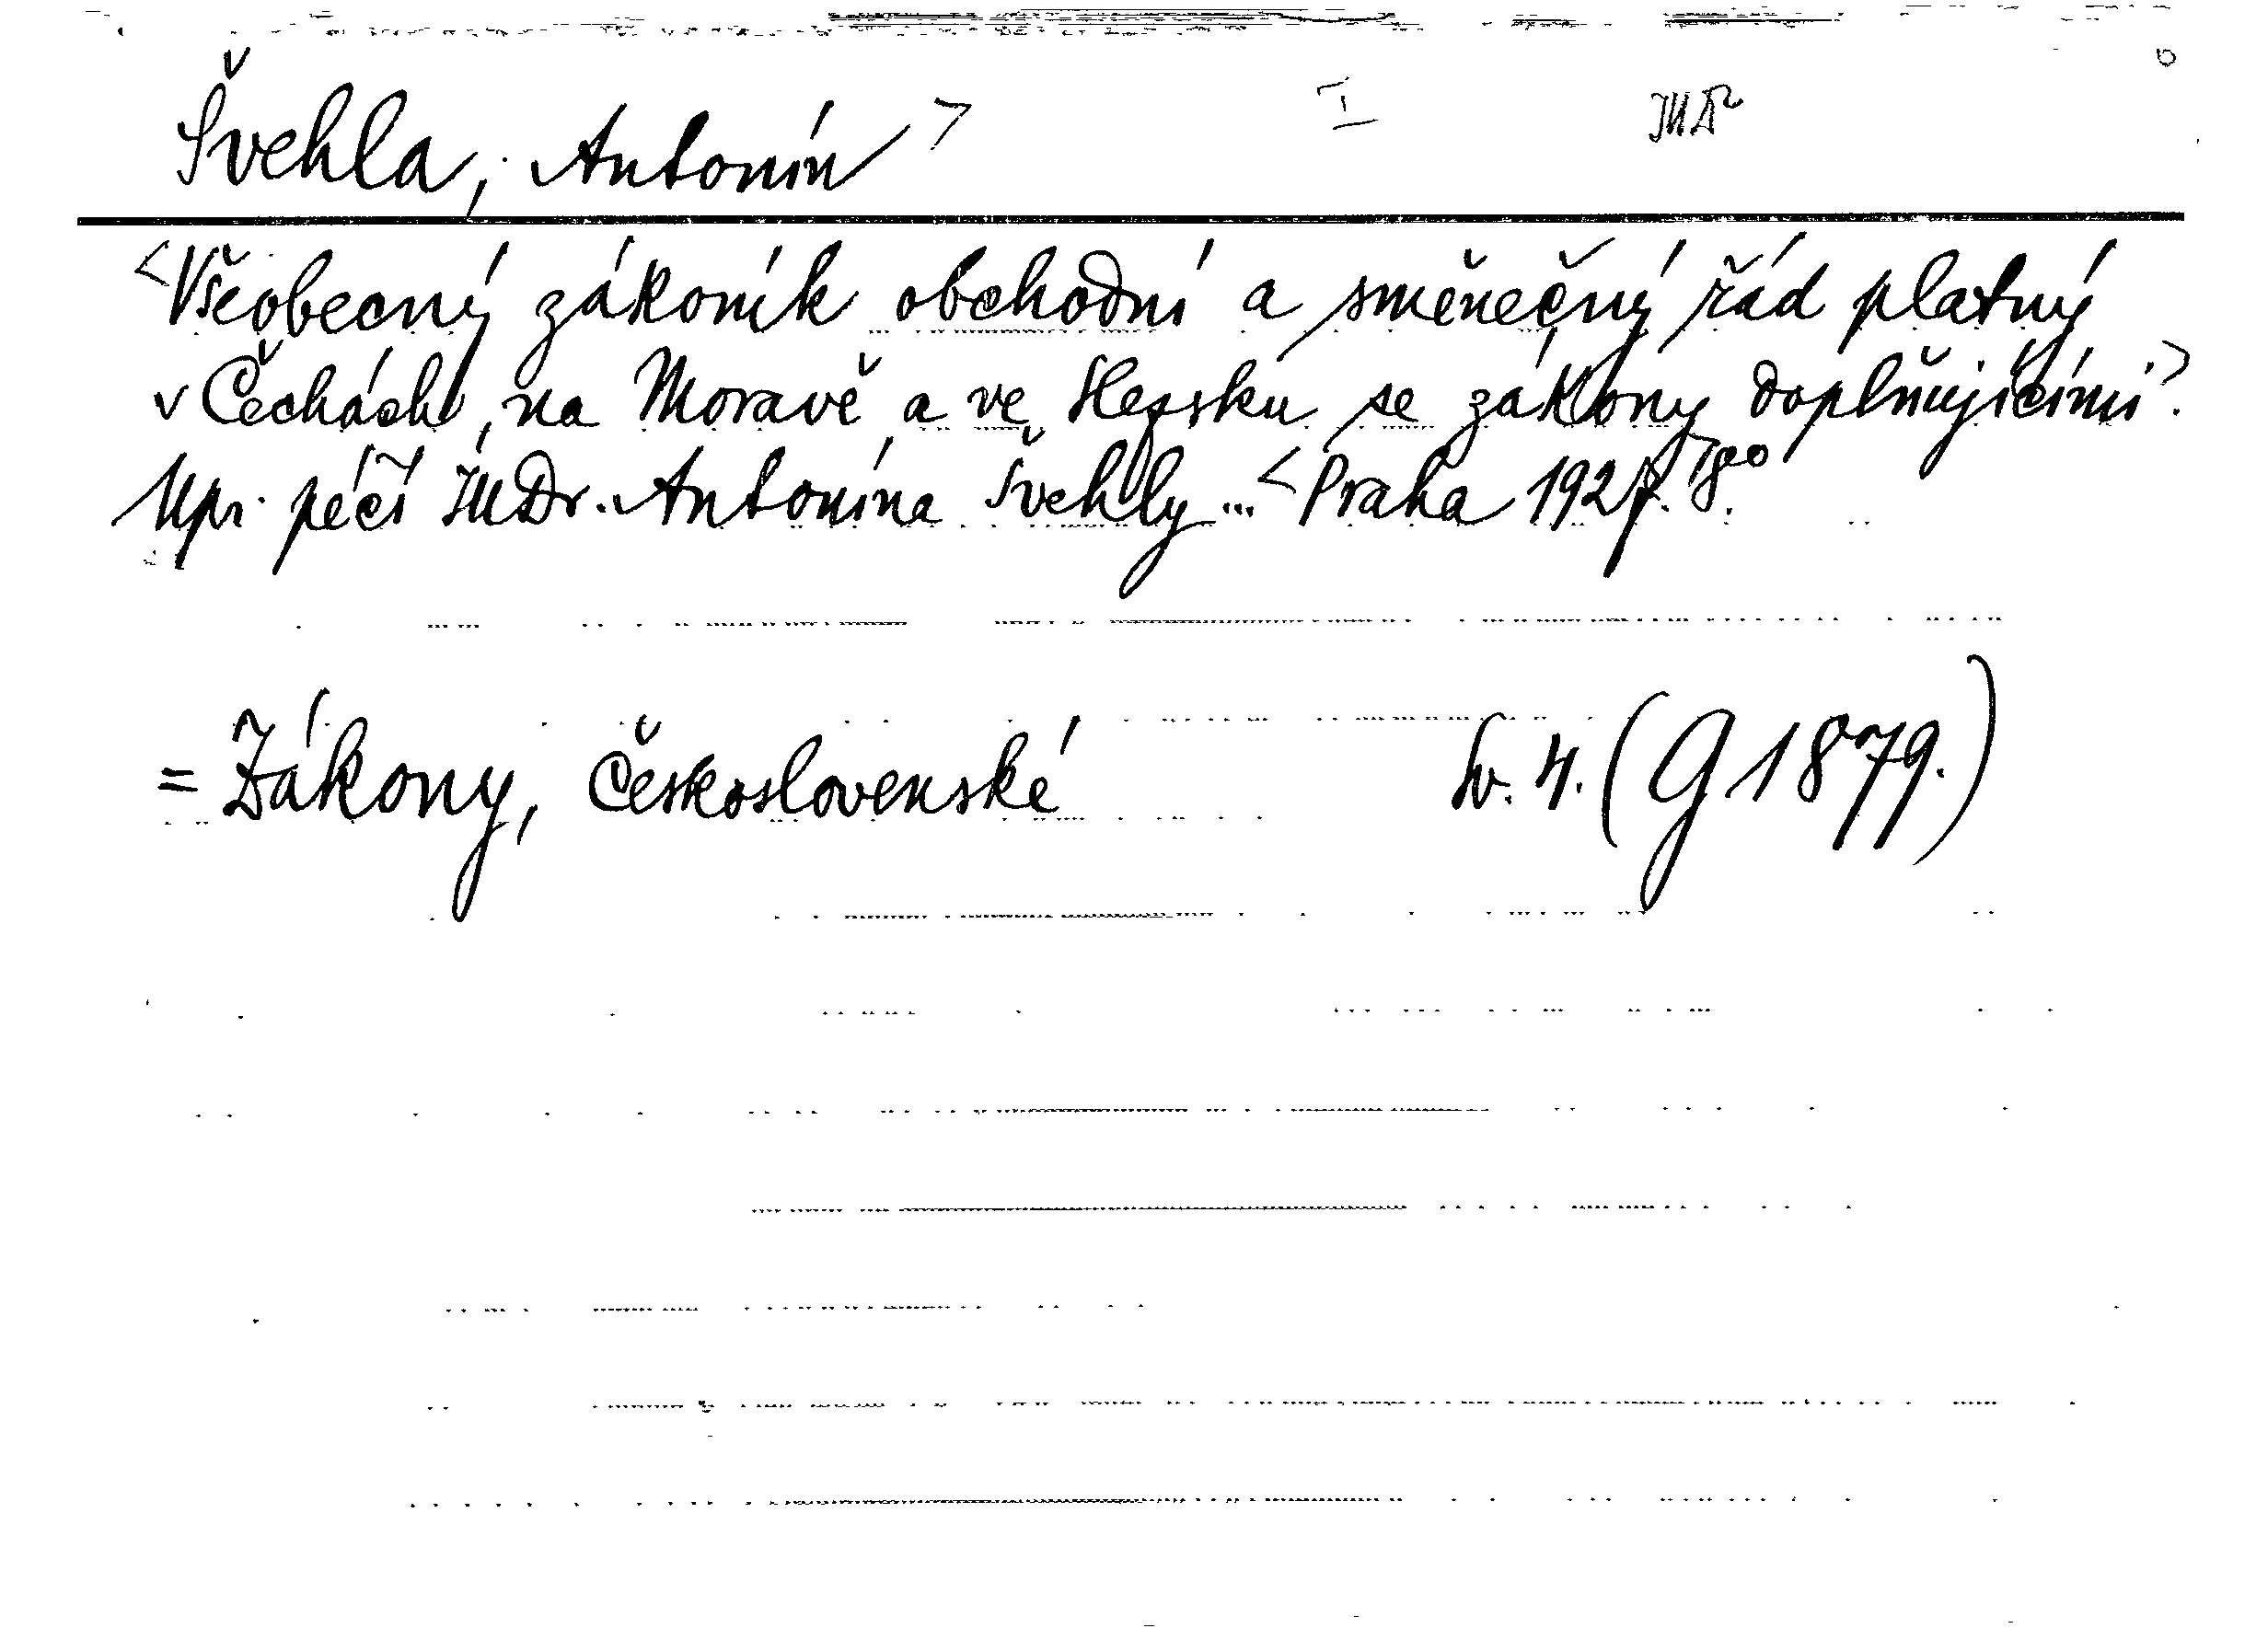 Švehla, Antonín > I JUDr
<Všeobecný zákoník obchodní a směnečný řád platný
v Čechách, na Moravě a ve Slezsku se zákony doplňujícími>.
Upr. péčí JUDr. Antonína Švehly ... <Praha 1927. > 8°.
= Zákony, Československé Sv. 4. (G 1879.)